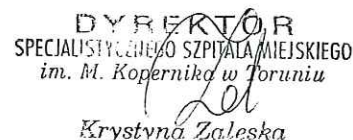 DYREKTOR
SPECJALISTYCZNEGO SZPITALA MIEJSKIEGO
im. M. Kopernika w Toruniu
Krystyna Zaleska